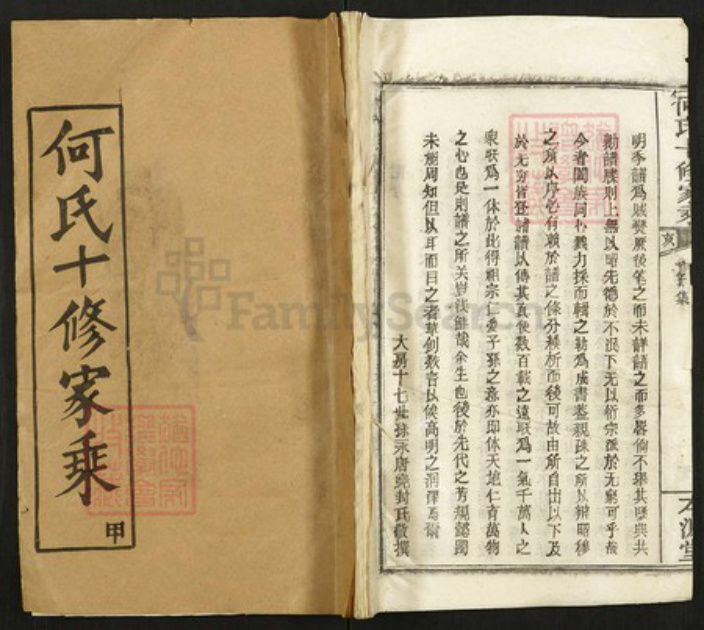 何氏十修家乘
甲
何氏十修家乘
亥
本源堂
明季譜爲賊燹厥後筆之而未詳語之而多畧倘不舉其墜典共
勷譜牒則上無以昭先德於不泯下無以衍宗派於无窮可乎故
今者闔族同心戮力採而輯之勒爲成書蓋親疎之所以辯昭穆
之所以序必有賴於譜之條分縷析而後可故由所自出以下及
於无窮皆登諸譜以傳其真使數百載之遠联爲一氣千萬人之
衆联爲一体於此得祖宗仁愛子孫之意亦即体天地仁育萬物
之心也是則譜之所关豈浅鮮哉余生也後於先代之芳規懿國
未能周知但以耳而目之者草创数言以俟高明之润澤焉爾
大房十七世孫永唐堯封氏敬撰
FamilySearch